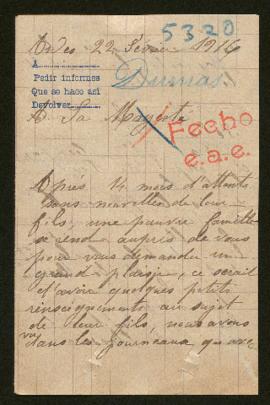 5320
Ordes 22 Février 1916
A
Pedir informes
Que se haco asi
Devolver
Dumas
A Sa Majesté
Fecho
e.a.e.
Après 14 mois d'attente
sans nouvelles de leur
fils, une pauvre famille
se rend auprès de vous
pour vous demander un
grand plaisir, ce serait
d'avoir quelques petits
renseignements au sujet
de leur fils, nous avons
vu dans les journeaux que